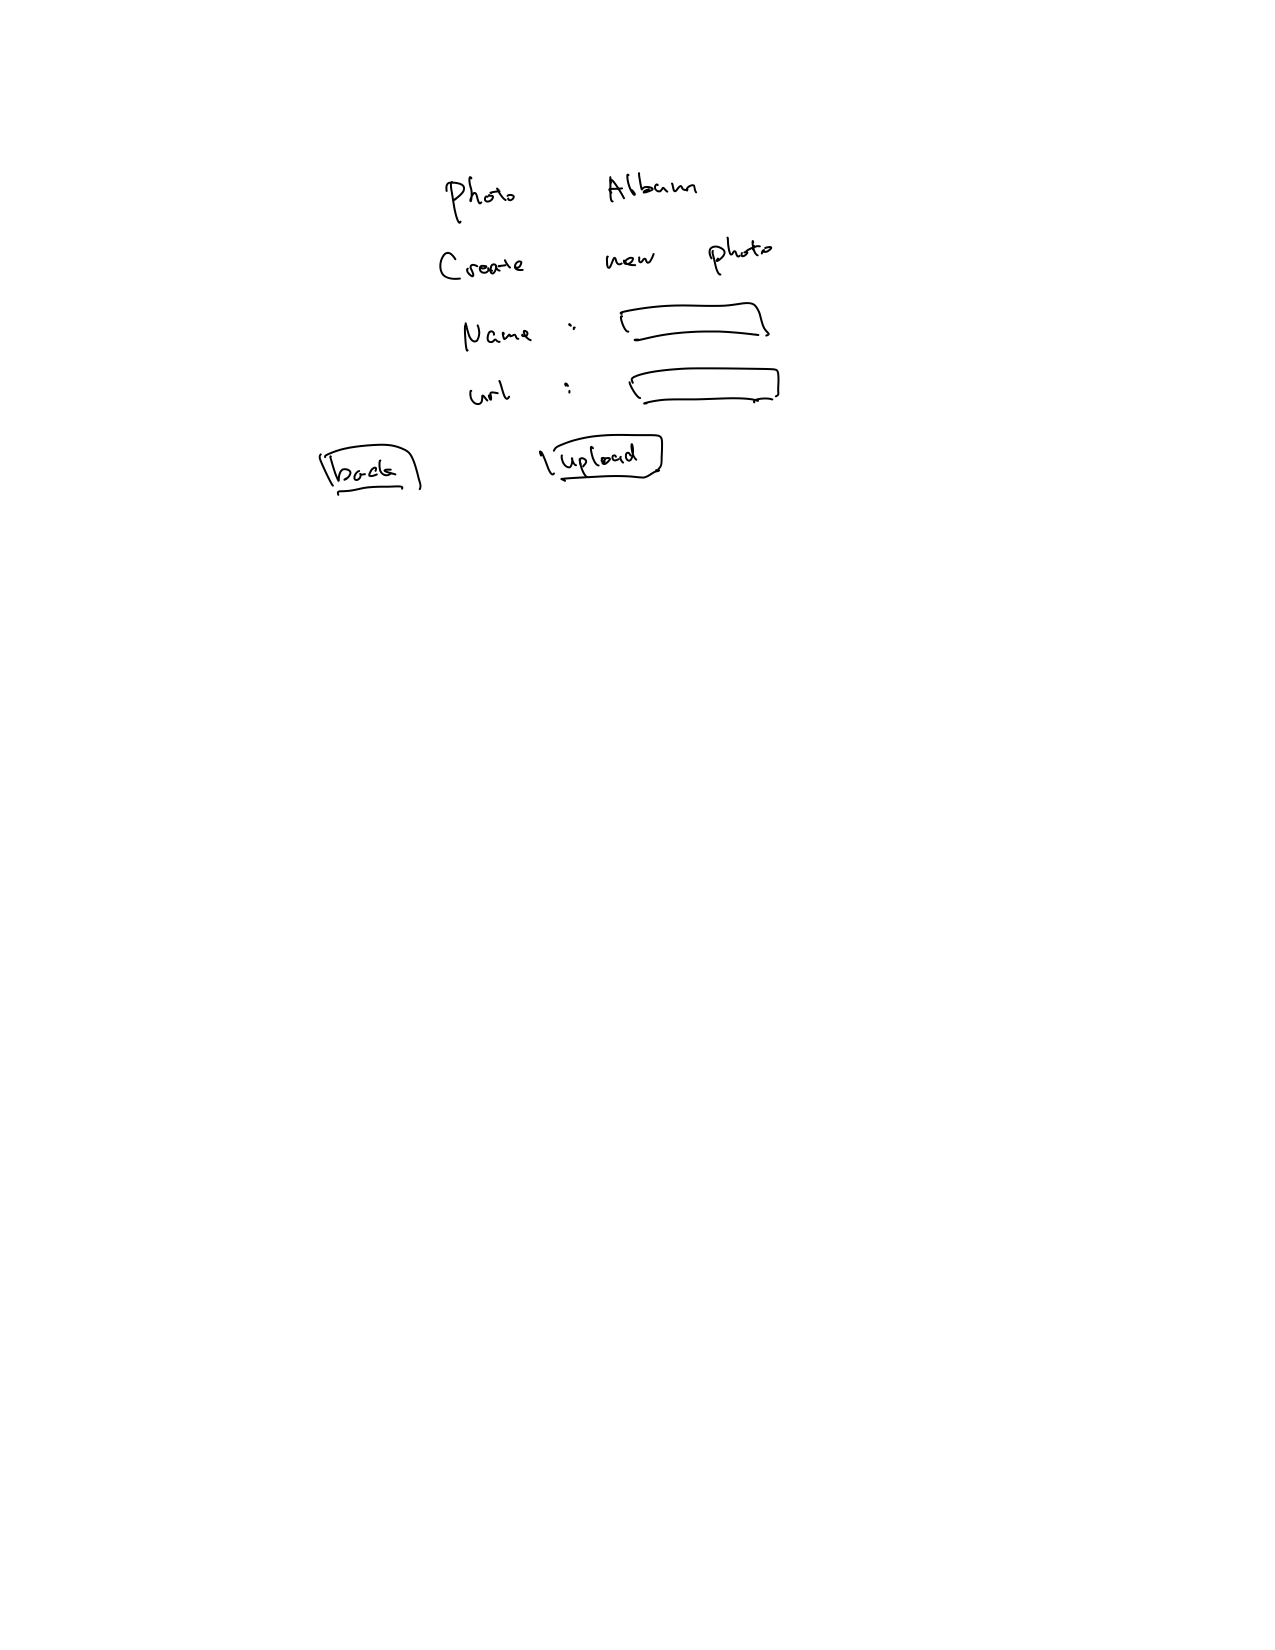 Photo Album
Create new photo
Name :
url :
back upload